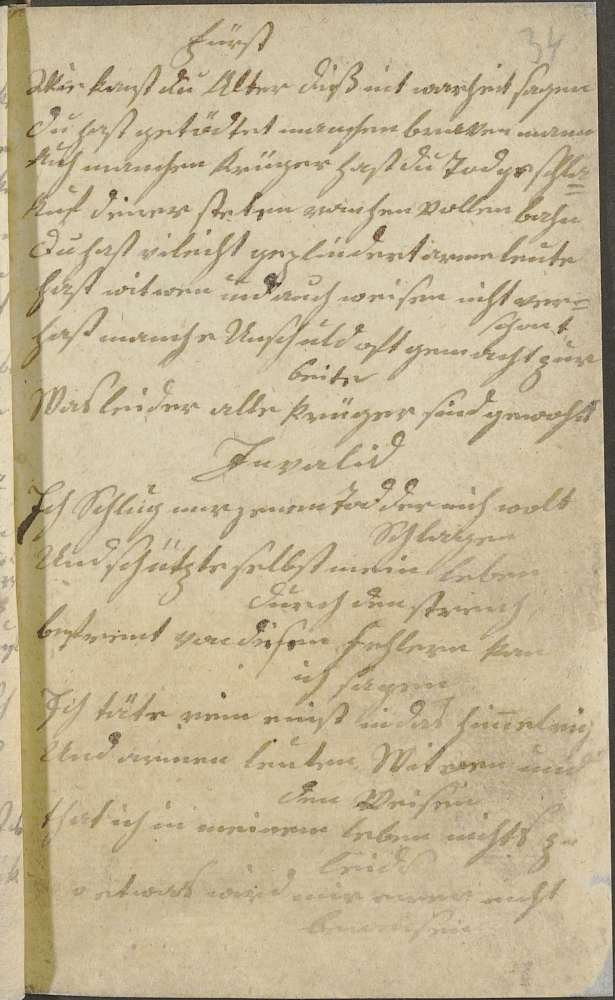 34
Fürst
Wie kanst du Alter diß mit warheit sagen
Du hast getödtet manchen braven mann
Auch manchen Krüger hast du Tod geschla=
Auf deiner steten rauchen vollen bahn
Du hast vileicht geplindert arme leute
hast witwen und auch weisen nicht ver=
schont
hast manche Unschuld oft gemacht zur
beite
Was leider alle Krüger sind gewohnt
Invalid
Ich Schlug nur jenen Tod der mich wolt
Schlagen
Und schützte selbst mein leben
durch den streich
befreint von disen fehlern kan
ich sagen
Ich täte rein einst in das himelreich
Und armen leuten Witwen und
den Weisen
that ich in meinem leben nichts zu
leids
etwas wird mir nicht
beweisen